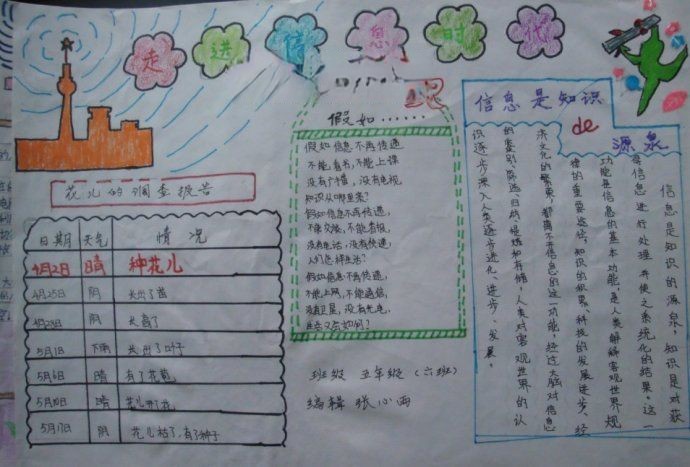 走进信息时代
花儿的调查报告
日期 天气 情况
4月2日 晴 种花儿
4月25日 阴 长出了苗
4月28日 阴 长高了
5月1日 下雨 长出了叶子
5月6日 晴 有了花苞
5月10日 晴 花儿开了花
5月17日 阴 花儿枯了,有了种子
假如……
假如信息不再传递,
不能看书,不能上课
没有广播,没有电视,
知识从哪里来?
假如信息不再传递,
不像交谈,不能看报,
没有电话,没有快递,
人们怎样生活?
假如信息不再传递,
不能上网,不能通信,
没有卫星,没有光电,
又如何?
班级 五年级(六班)
编辑 张心雨
信息是知识
de
源泉
信息是知识的源泉,知识是对获
得信息进行处理并使之系统化的结果。这一
功能是信息的基本功能,是人类解客观世界规
律的重要途径,知识的积累、科技的发展进步、经
济文化的繁荣,都离不开信息的这一功能,经过大脑对信息
的鉴别筛选归纳提炼和存储,人类对客观世界的认
识逐步深入人类逐步进化、进步、发展。